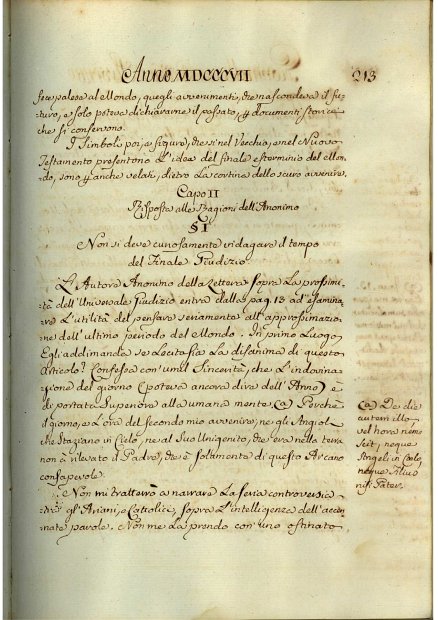 Anno MDCCCVII
213
fece palese al Mondo, quegli avverumenti, che nascondeva il fu-
turo, e solo poteva dichiararne il passato, y documenti storici
che si conservono.
I Simboli poi, e figure, che si nel Vecchio, e nel Nuovo
Testamento presentono L'idea del finale esterminio del Mon-
do, sono y anche velati, dietro La cortina dello scuro avvenire.
Capo II
Risposta alle Ragioni dell'Anonimo
§ I
Non si deve curiosamente indagare il tempo
del Finale Giudizio
L'Autore Anonimo della Lettera sopra La prossimi-
tà dell'Universale Giudizio entra dalla pag. 13 ad esamina-
re L'utilità del pensare seriamente all'approssimazio-
ne dell'ultimo periodo del Mondo. In primo Luogo
Egli addimanda se Lecita sia La disamina di questo
articolo? Confessa con umil Sincerità, che L'indovina-
zione del giorno (poteva ancora dire dell'Anno) è
di portata Superiore alla umana mente. (a) Perchè
il giorno, e à ora del secondo mio avvenire, ne gli Angioli
che Staziano in Cielo, ne al Suo Unigenito, che era nella terra
non à rilevato il Padre, che è solamente di questo Arcano
consapevole.
Non mi tratterrò a narrare La seria controversia
trà gli Ariani, e Cattolici, sopra L'intelligenza dell'accen-
nate parole. Non me La prendo con uno ostinato
(a) De die
autem illo
vel hora nemo
scit, neque
Angeli in Coelo,
neque Filius
nisi Pater.